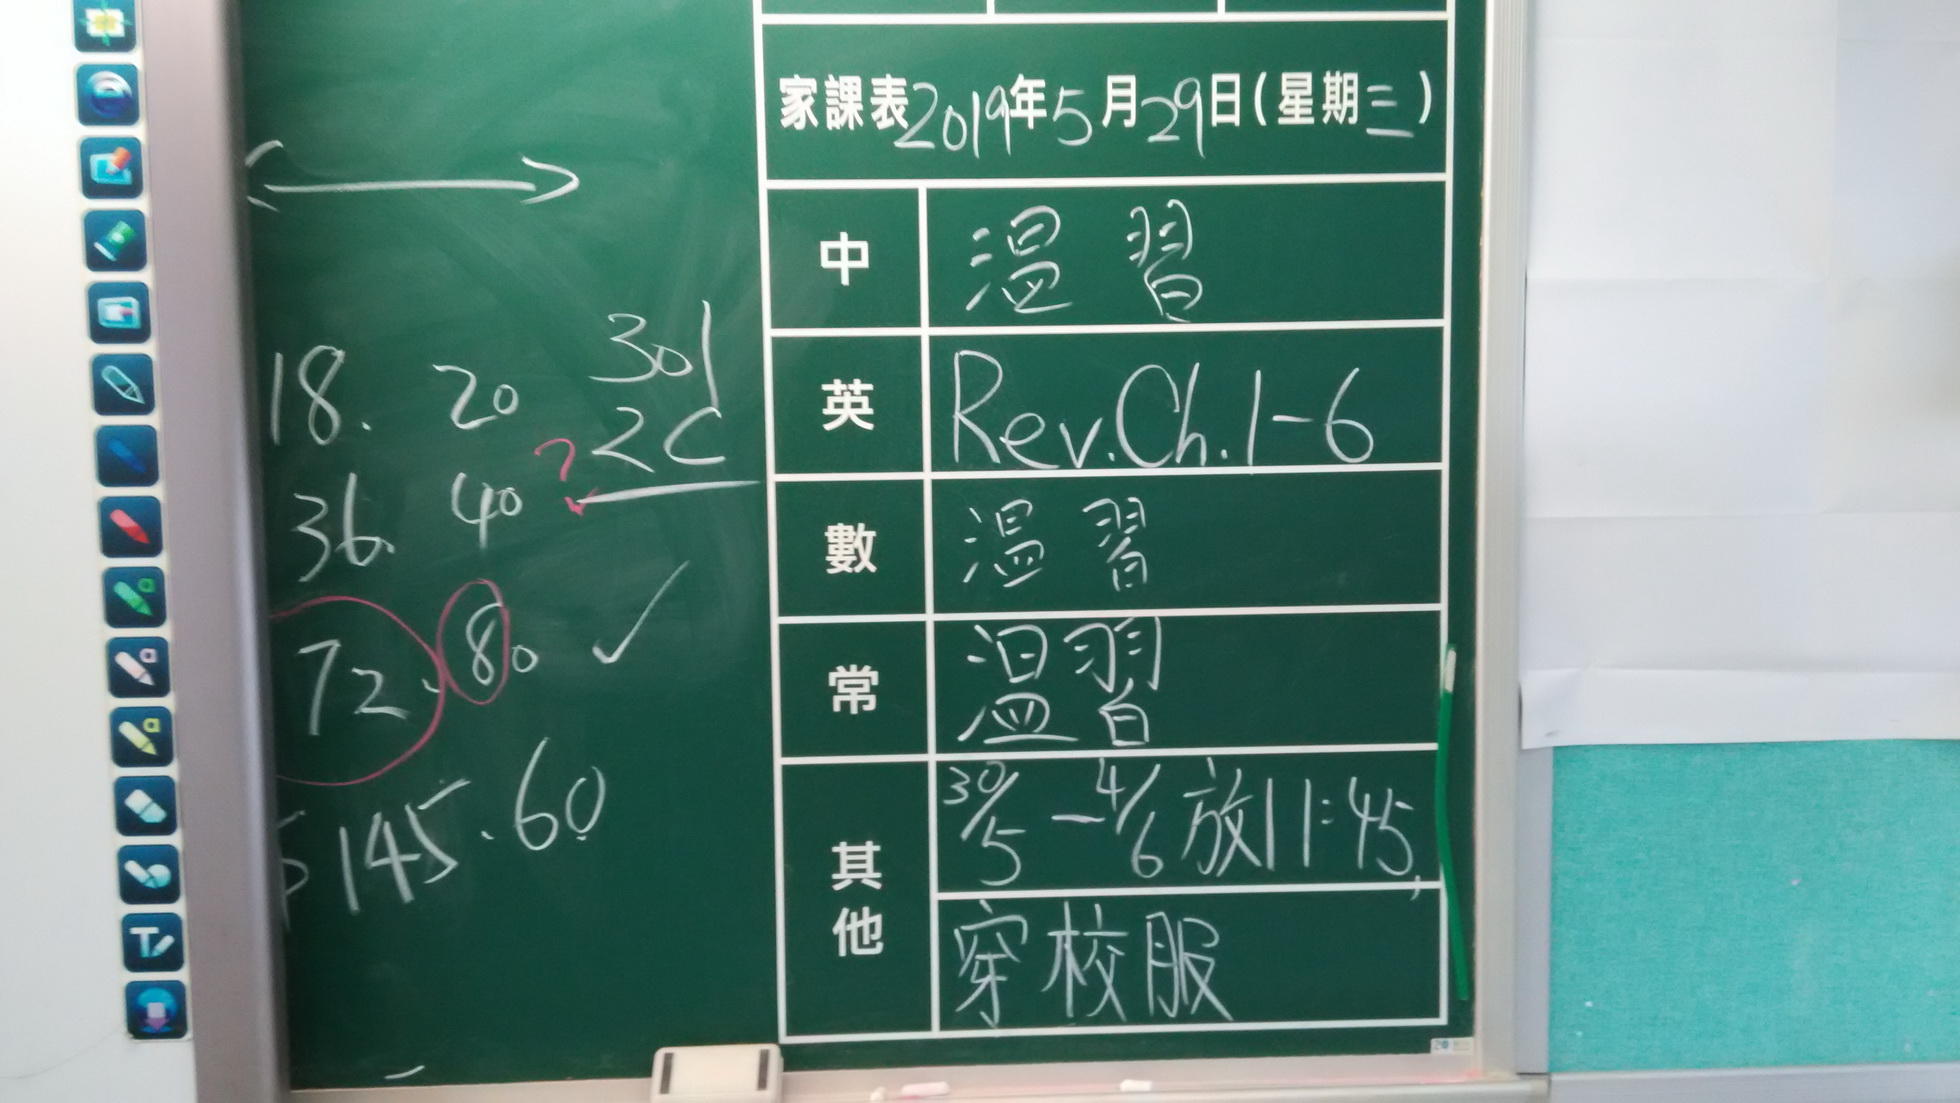 家課表2019年5月29日(星期三)
中 温習
英 Rev.Ch.1-6
數 温習
常 温習
其他 30/5-4/6放11:45,
穿校服
301
18. 20
2C
?
36. 40
72.80 ✓
$145.60